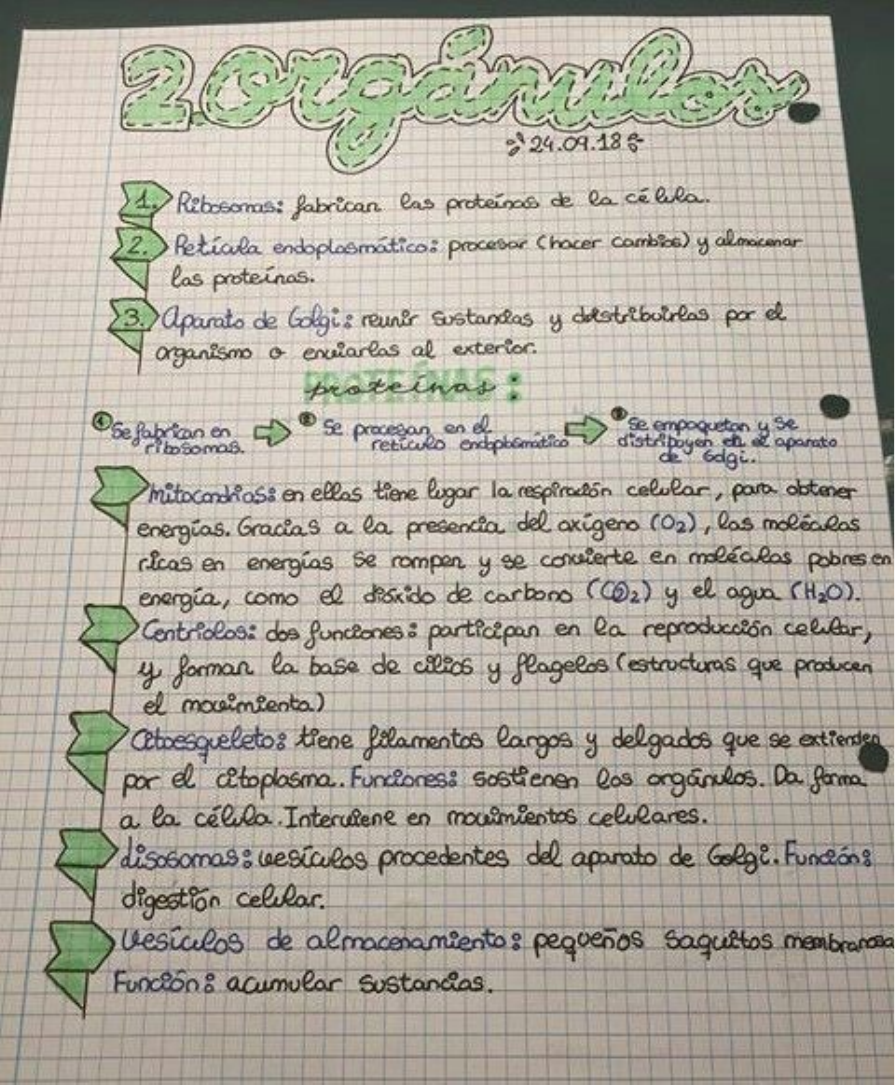 2.Orgánulos
24.09.18
1. Ribosomas: fabrican las proteínas de la célula.
2. Retícula endoplasmático: procesar (hacer cambios) y almacenar
las proteínas.
3. Aparato de Golgi: reunir sustancias y distribuirlas por el
organismo o enviarlas al exterior.
proteínas:
① Se fabrican en
ribosomas.
② Se procesan en el
retículo endoplasmático
③ Se empaquetan y se
distribuyen en el aparato
de Golgi.
Mitocondrias: en ellas tiene lugar la respiración celular, para obtener
energías. Gracias a la presencia del oxígeno (O₂), las moléculas
ricas en energías se rompen y se convierte en moléculas pobres en
energía, como el dióxido de carbono (CO₂) y el agua (H₂O).
Centriolos: dos funciones: participan en la reproducción celular,
y forman la base de cilios y flagelos (estructuras que producen
el movimiento)
Citoesqueleto: tiene filamentos largos y delgados que se extienden
por el citoplasma. Funciones: sostienen los orgánulos. Da forma
a la célula. Interviene en movimientos celulares.
lisosomas: vesículos procedentes del aparato de Golgi. Función:
digestión celular.
Vesículos de almacenamiento: pequeños saquitos membranosa
Función: acumular sustancias.